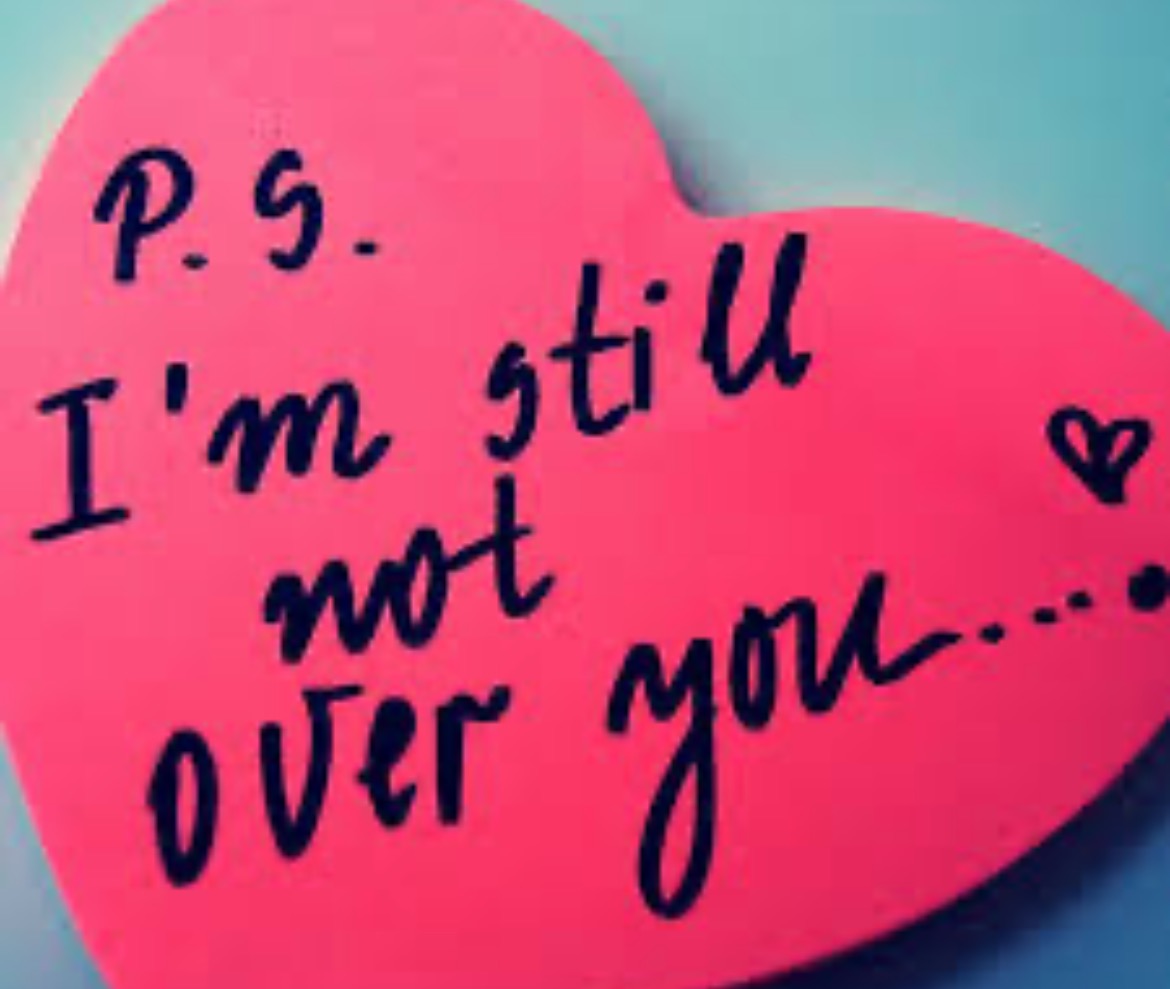 P.S.
I'm still
not
over you....